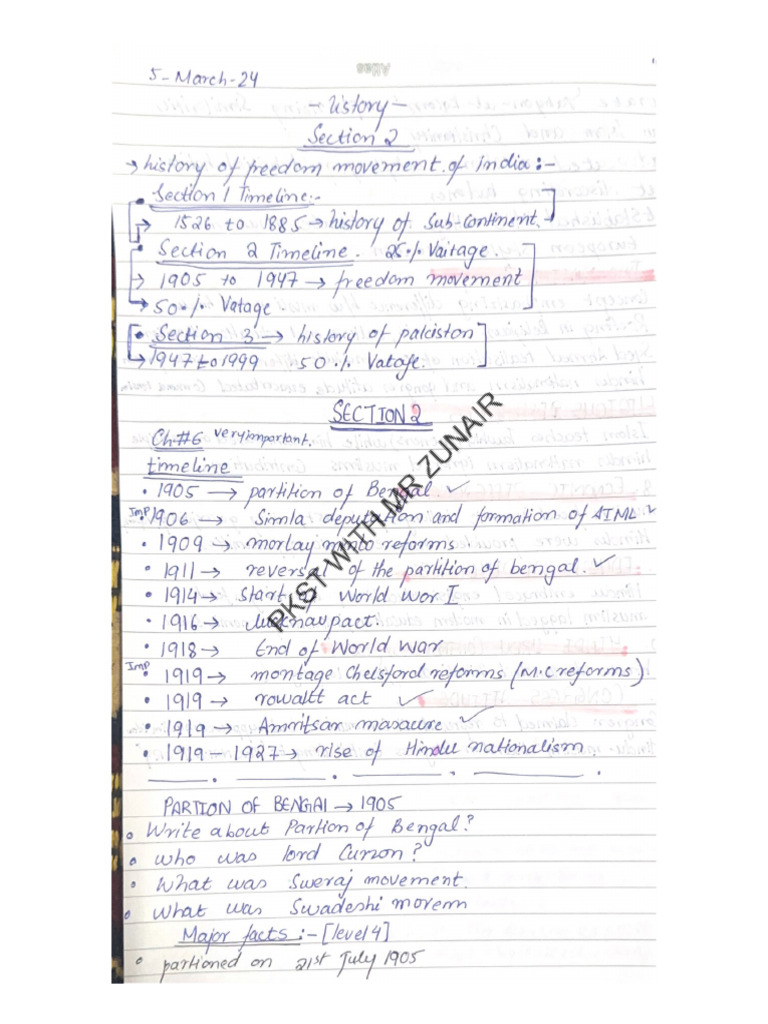 5-March-24
-History-
Section 2
→ history of freedom movement of India:-
• Section 1 Timeline:-
→ 1526 to 1885 → history of Sub-Continent.
• Section 2 Timeline. 25% Vaitage.
→ 1905 to 1947 → freedom movement
→ 50% Vatage
• Section 3 → history of pakiston
→ 1947 to 1999 50% Vatage.
SECTION 2
Ch#6 very important.
timeline
• 1905 → partition of Bengal ✓
Imp • 1906 → Simla deputation and formation of AIML ✓
• 1909 → morlay minto reforms
• 1911 → reversal of the partition of bengal. ✓
• 1914 → Start of World War I
• 1916 → lucknau pact.
• 1918 → End of World War
Imp • 1919 → montage Chelsford reforms (M.C reforms)
• 1919 → rowaltt act ✓
• 1919 → Amritsar masacure ✓
• 1919 - 1927 → rise of Hindu nationalism
PARTION OF BENGAl → 1905
• Write about Partion of Bengal?
• who was lord Curzon?
• What was Sweraj movement.
• what was Swadeshi morem
Major facts :- [level 4]
• partioned on 21st July 1905
PKST WITH MR ZUNAIR